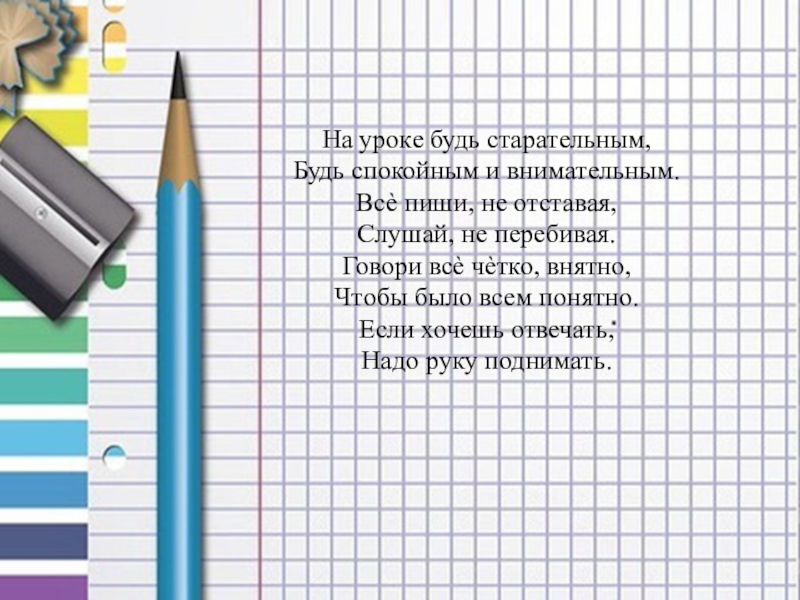 На уроке будь старательным,
Будь спокойным и внимательным.
Всѐ пиши, не отставая,
Слушай, не перебивая.
Говори всѐ чѐтко, внятно,
Чтобы было всем понятно.
Если хочешь отвечать,
Надо руку поднимать.